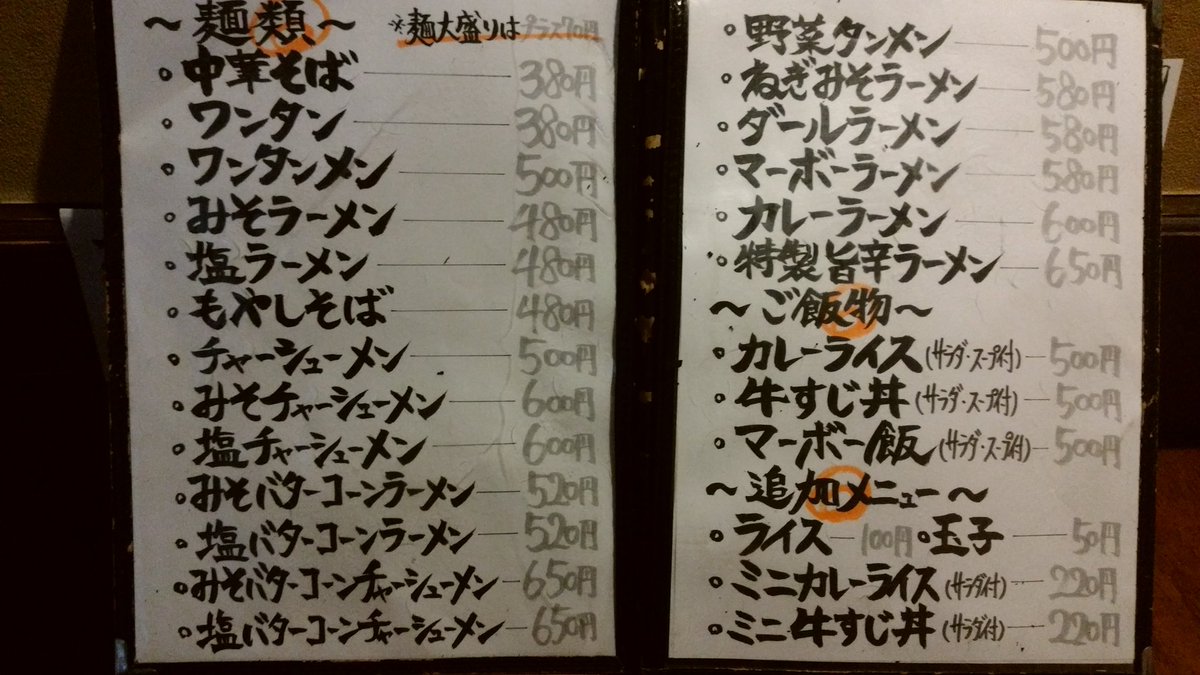 ～麺類～ ※麺大盛りはプラス70円
。中華そば 380円
。ワンタン 380円
。ワンタンメン 500円
。みそラーメン 480円
。塩ラーメン 480円
。もやしそば 480円
。チャーシューメン 500円
。みそチャーシューメン 600円
。塩チャーシューメン 600円
。みそバターコーンラーメン 520円
。塩バターコーンラーメン 520円
。みそバターコーンチャーシューメン 650円
。塩バターコーンチャーシューメン 650円
。野菜タンメン 500円
。ねぎみそラーメン 580円
。ダールラーメン 580円
。マーボーラーメン 580円
。カレーラーメン 600円
。特製旨辛ラーメン 650円
～ご飯物～
。カレーライス(サラダ・スープ付) 500円
。牛すじ丼(サラダ・スープ付) 500円
。マーボー飯(サラダ・スープ付) 500円
～追加メニュー～
。ライス 100円 。玉子 50円
。ミニカレーライス(サラダ付) 220円
。ミニ牛すじ丼(サラダ付) 220円